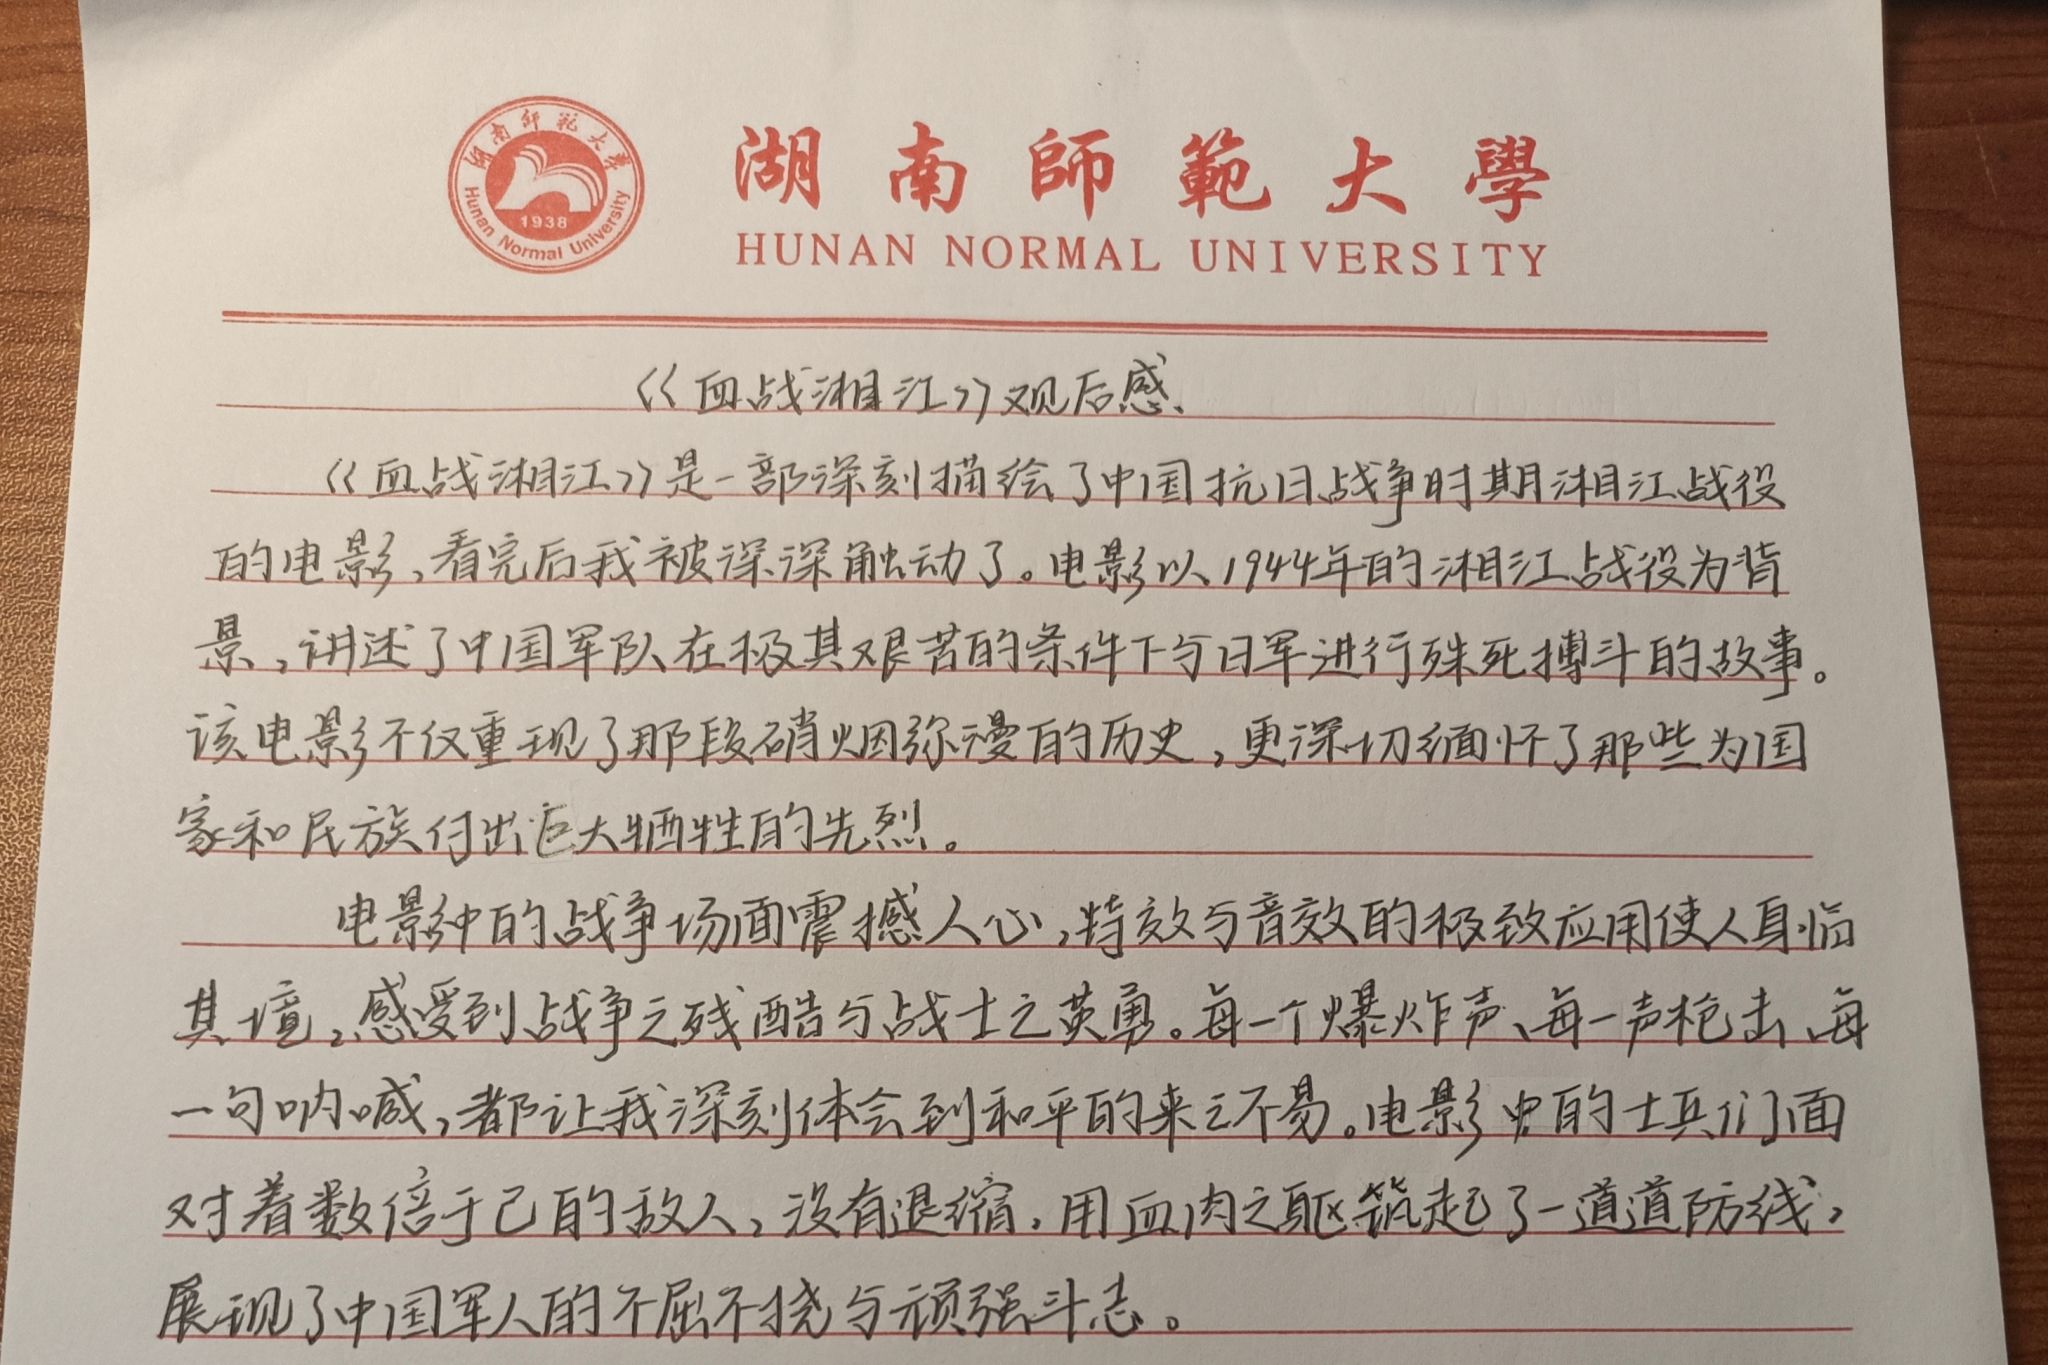 湖南师范大学
1938
Hunan Normal University
湖南師範大學
HUNAN NORMAL UNIVERSITY
《血战湘江》观后感、
《血战湘江》是一部深刻描绘了中国抗日战争时期湘江战役
的电影,看完后我被深深触动了。电影以1944年的湘江战役为背
景,讲述了中国军队在极其艰苦的条件下与日军进行殊死搏斗的故事。
该电影不仅重现了那段硝烟弥漫的历史,更深切缅怀了那些为国
家和民族付出巨大牺牲的先烈。
电影中的战争场面震撼人心,特效与音效的极致应用使人身临
其境,感受到战争之残酷与战士之英勇。每一个爆炸声、每一声枪击、每
一句呐喊,都让我深刻体会到和平的来之不易。电影中的士兵们面
对着数倍于己的敌人,没有退缩,用血肉之躯筑起了一道道防线,
展现了中国军人的不屈不挠与顽强斗志。